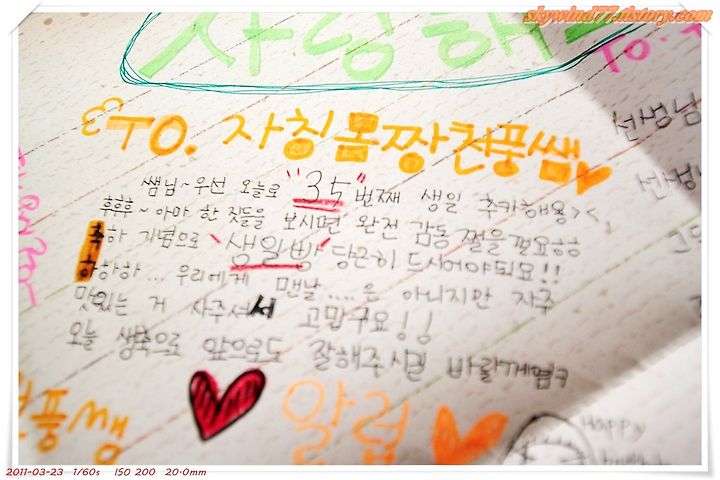 skywind77.tistory.com
사랑해
To.
TO. 자칭몸짱천풍쌤
쌤님~우선 오늘로 "35"번째 생일 추카해용><
후후후~아마 한 짓들을 보시면 완전 감동 쩔을껄요ㅎㅎ
축하 기념으로 생일빵 당근히 드시어야되요!!
하하하... 우리에게 맨날....은 아니지만 자주
맛있는 거 사주셔서 고맙구요!!
오늘 생축으로 앞으로도 잘해주시길 바랄게염ㅋ
선생님
선생님
그
풍쌩
알럽
Happy
2011-03-23 1/60s ISO 200 20.0mm